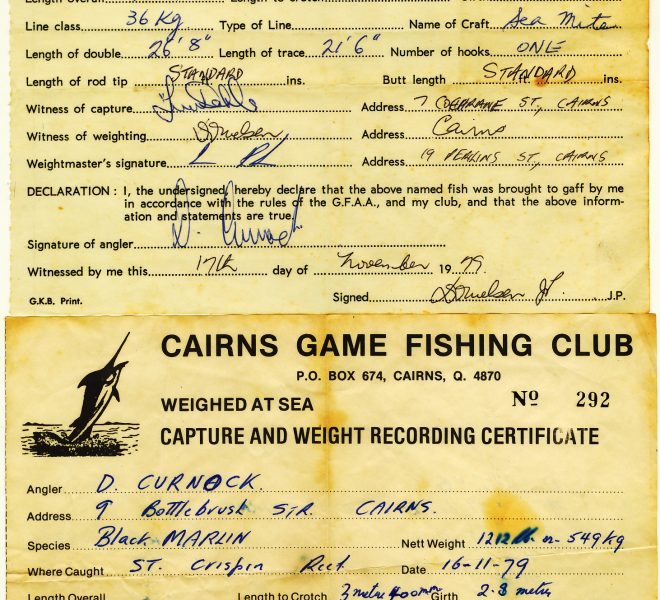 Length Overall Length to Crotch Girth
Line class 36 Kg Type of Line Name of Craft Sea Mite
Length of double 26' 8" Length of trace 21' 6" Number of hooks ONE
Length of rod tip STANDARD ins. Butt length STANDARD ins.
Witness of capture Address 7 COCHRANE ST., CAIRNS
Witness of weighting Address Cairns
Weightmaster's signature Address 19 PERKINS ST., CAIRNS
DECLARATION : I, the undersigned, hereby declare that the above named fish was brought to gaff by me
in accordance with the rules of the G.F.A.A., and my club, and that the above inform-
ation and statements are true.
Signature of angler D. Curnock
Witnessed by me this 17th day of November 1979
G.K.B. Print. Signed J.P.
CAIRNS GAME FISHING CLUB
P.O. BOX 674, CAIRNS, Q. 4870
WEIGHED AT SEA No 292
CAPTURE AND WEIGHT RECORDING CERTIFICATE
Angler D. CURNOCK.
Address 9 Bottlebrush STR. CAIRNS.
Species Black MARLIN Nett Weight 1212 lb or 549 kg
Where Caught ST. Crispin Reef Date 16-11-79
Length Overall Length to Crotch 3 metre Girth 2·3 metres